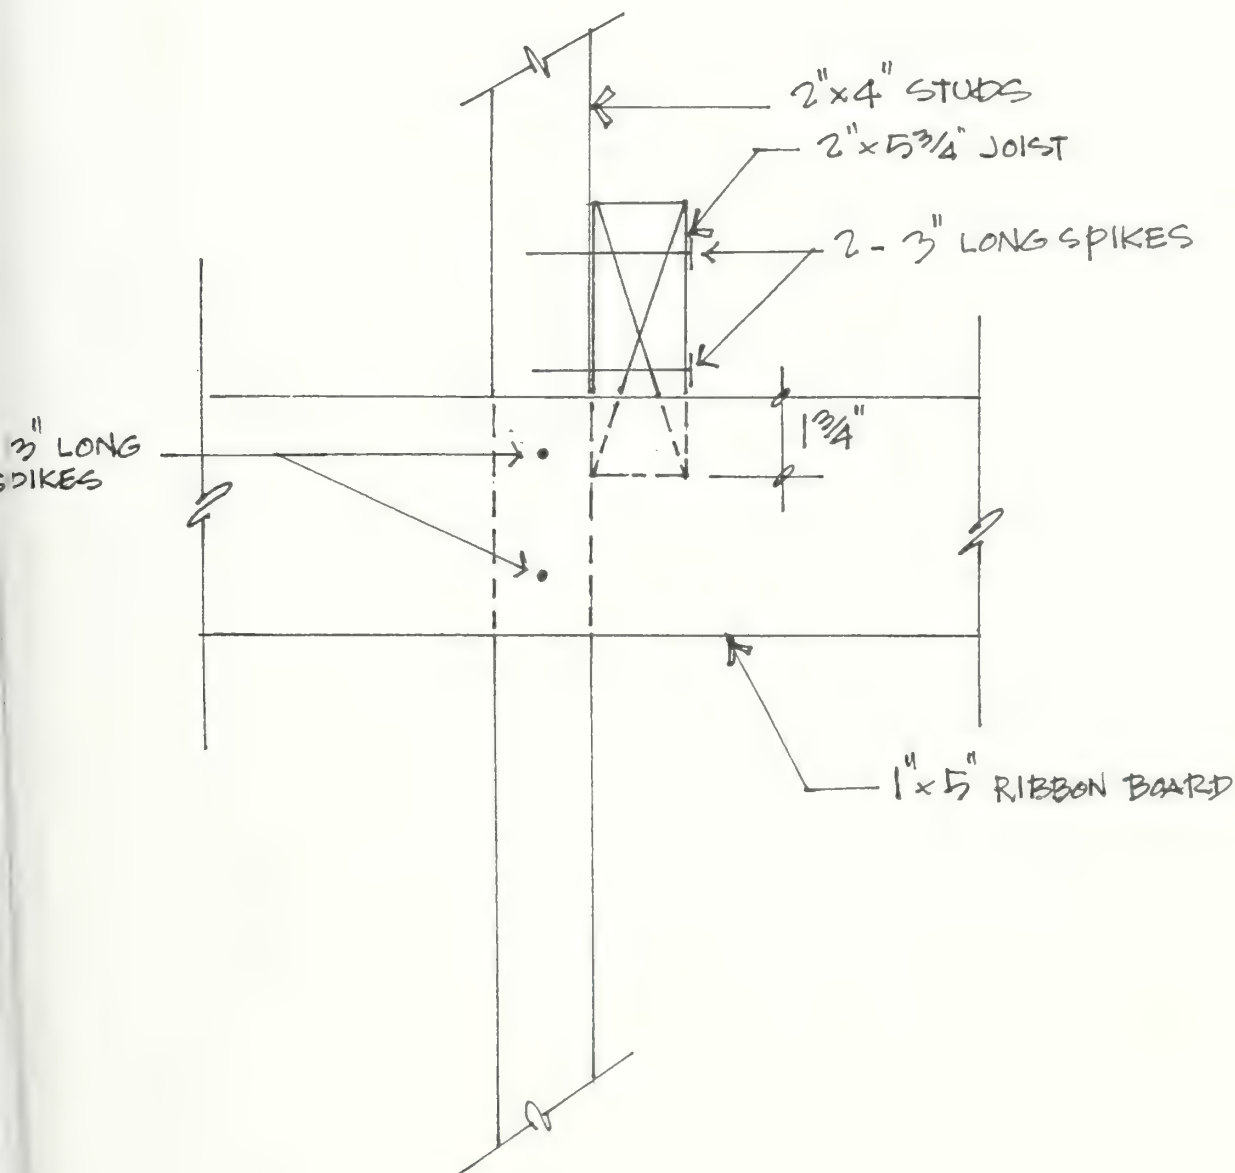 2"x4" STUDS
2"x5¾" JOIST
2 - 3" LONG SPIKES
1¾"
3" LONG
SPIKES
1"x5" RIBBON BOARD